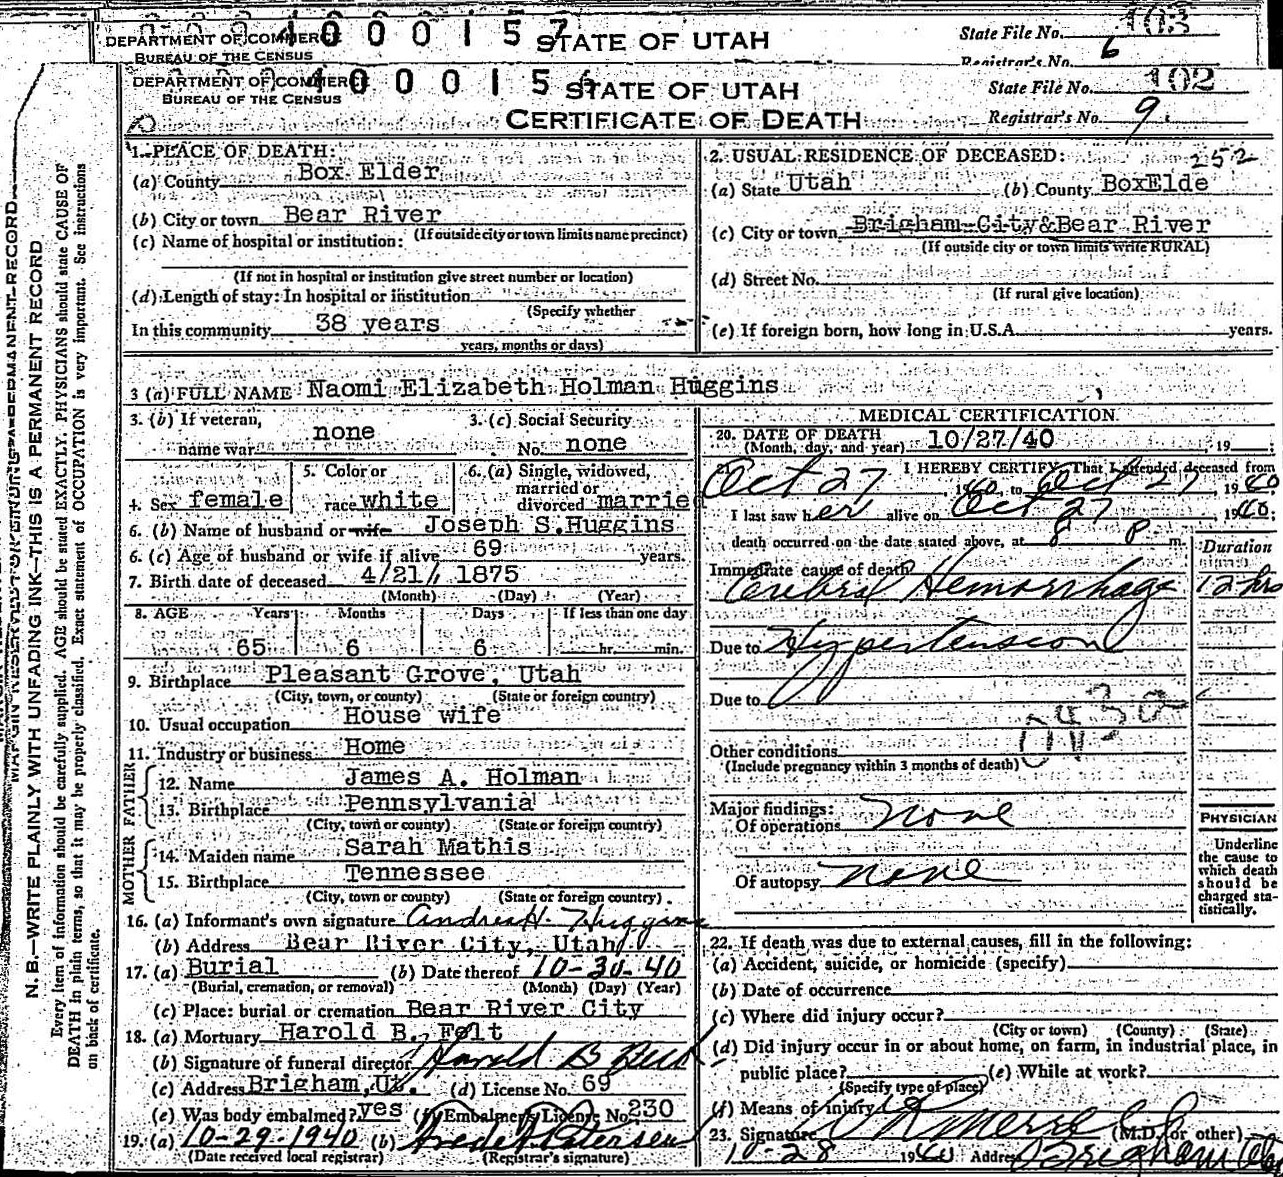 DEPARTMENT OF COMMERCE 4000157 STATE OF UTAH State File No. 103
BUREAU OF THE CENSUS Registrar's No. 6
DEPARTMENT OF COMMERCE 400015 STATE OF UTAH State File No. 102
BUREAU OF THE CENSUS
CERTIFICATE OF DEATH Registrar's No. 9
N. B.—WRITE PLAINLY WITH UNFADING INK—THIS IS A PERMANENT RECORD
Every item of information should be carefully supplied. AGE should be stated EXACTLY. PHYSICIANS should state CAUSE OF
DEATH in plain terms, so that it may be properly classified. Exact statement of OCCUPATION is very important. See instructions
on back of certificate.
1. PLACE OF DEATH:
(a) County Box Elder
(b) City or town Bear River
(If outside city or town limits name precinct)
(c) Name of hospital or institution:
(If not in hospital or institution give street number or location)
(d) Length of stay: In hospital or institution
(Specify whether
In this community 38 years
years, months or days)
2. USUAL RESIDENCE OF DECEASED: 252
(a) State Utah (b) County BoxElde
(c) City or town Brigham City&Bear River
(If outside city or town limits write RURAL)
(d) Street No.
(If rural give location)
(e) If foreign born, how long in U.S.A. years.
3 (a) FULL NAME Naomi Elizabeth Holman Huggins
3. (b) If veteran, name war none
3. (c) Social Security No. none
4. Sex female
5. Color or race white
6. (a) Single, widowed, married or divorced married
6. (b) Name of husband or wife Joseph S.Huggins
6. (c) Age of husband or wife if alive 69 years.
7. Birth date of deceased 4/21/ 1875
(Month) (Day) (Year)
8. AGE Years Months Days If less than one day
65 6 6 hr. min.
9. Birthplace Pleasant Grove, Utah
(City, town, or county) (State or foreign country)
10. Usual occupation House wife
11. Industry or business Home
FATHER
12. Name James A. Holman
13. Birthplace Pennsylvania
(City, town or county) (State or foreign country)
MOTHER
14. Maiden name Sarah Mathis
15. Birthplace Tennessee
(City, town or county) (State or foreign country)
16. (a) Informant's own signature Andrea H. Huggins
(b) Address Bear River City, Utah
17. (a) Burial (b) Date thereof 10-30-40
(Burial, cremation, or removal) (Month) (Day) (Year)
(c) Place: burial or cremation Bear River City
18. (a) Mortuary Harold B. Felt
(b) Signature of funeral director Harold B Felt
(c) Address Brigham, Ut. (d) License No. 69
(e) Was body embalmed? yes (f) Embalmer's License No. 230
19. (a) 10-29-1940 (b) Petersen
(Date received local registrar) (Registrar's signature)
MEDICAL CERTIFICATION
20. DATE OF DEATH 10/27/40 , 19
(Month, day, and year)
I HEREBY CERTIFY, That I attended deceased from
Oct 27, 1940, to Oct 27 1940
I last saw her alive on Oct 27 1940;
death occurred on the date stated above, at 8 P m.
Duration
Immediate cause of death
Cerebral Hemorrhage 12 hrs
Due to Hypertension
Due to
Other conditions
(Include pregnancy within 3 months of death)
Major findings:
Of operations none
Of autopsy none
PHYSICIAN
Underline
the cause to
which death
should be
charged sta-
tistically.
22. If death was due to external causes, fill in the following:
(a) Accident, suicide, or homicide (specify)
(b) Date of occurrence
(c) Where did injury occur?
(City or town) (County) (State)
(d) Did injury occur in or about home, on farm, in industrial place, in
public place? (e) While at work?
(Specify type of place)
(f) Means of injury
23. Signature (M.D. or other)
10-28 1940 Address Brigham